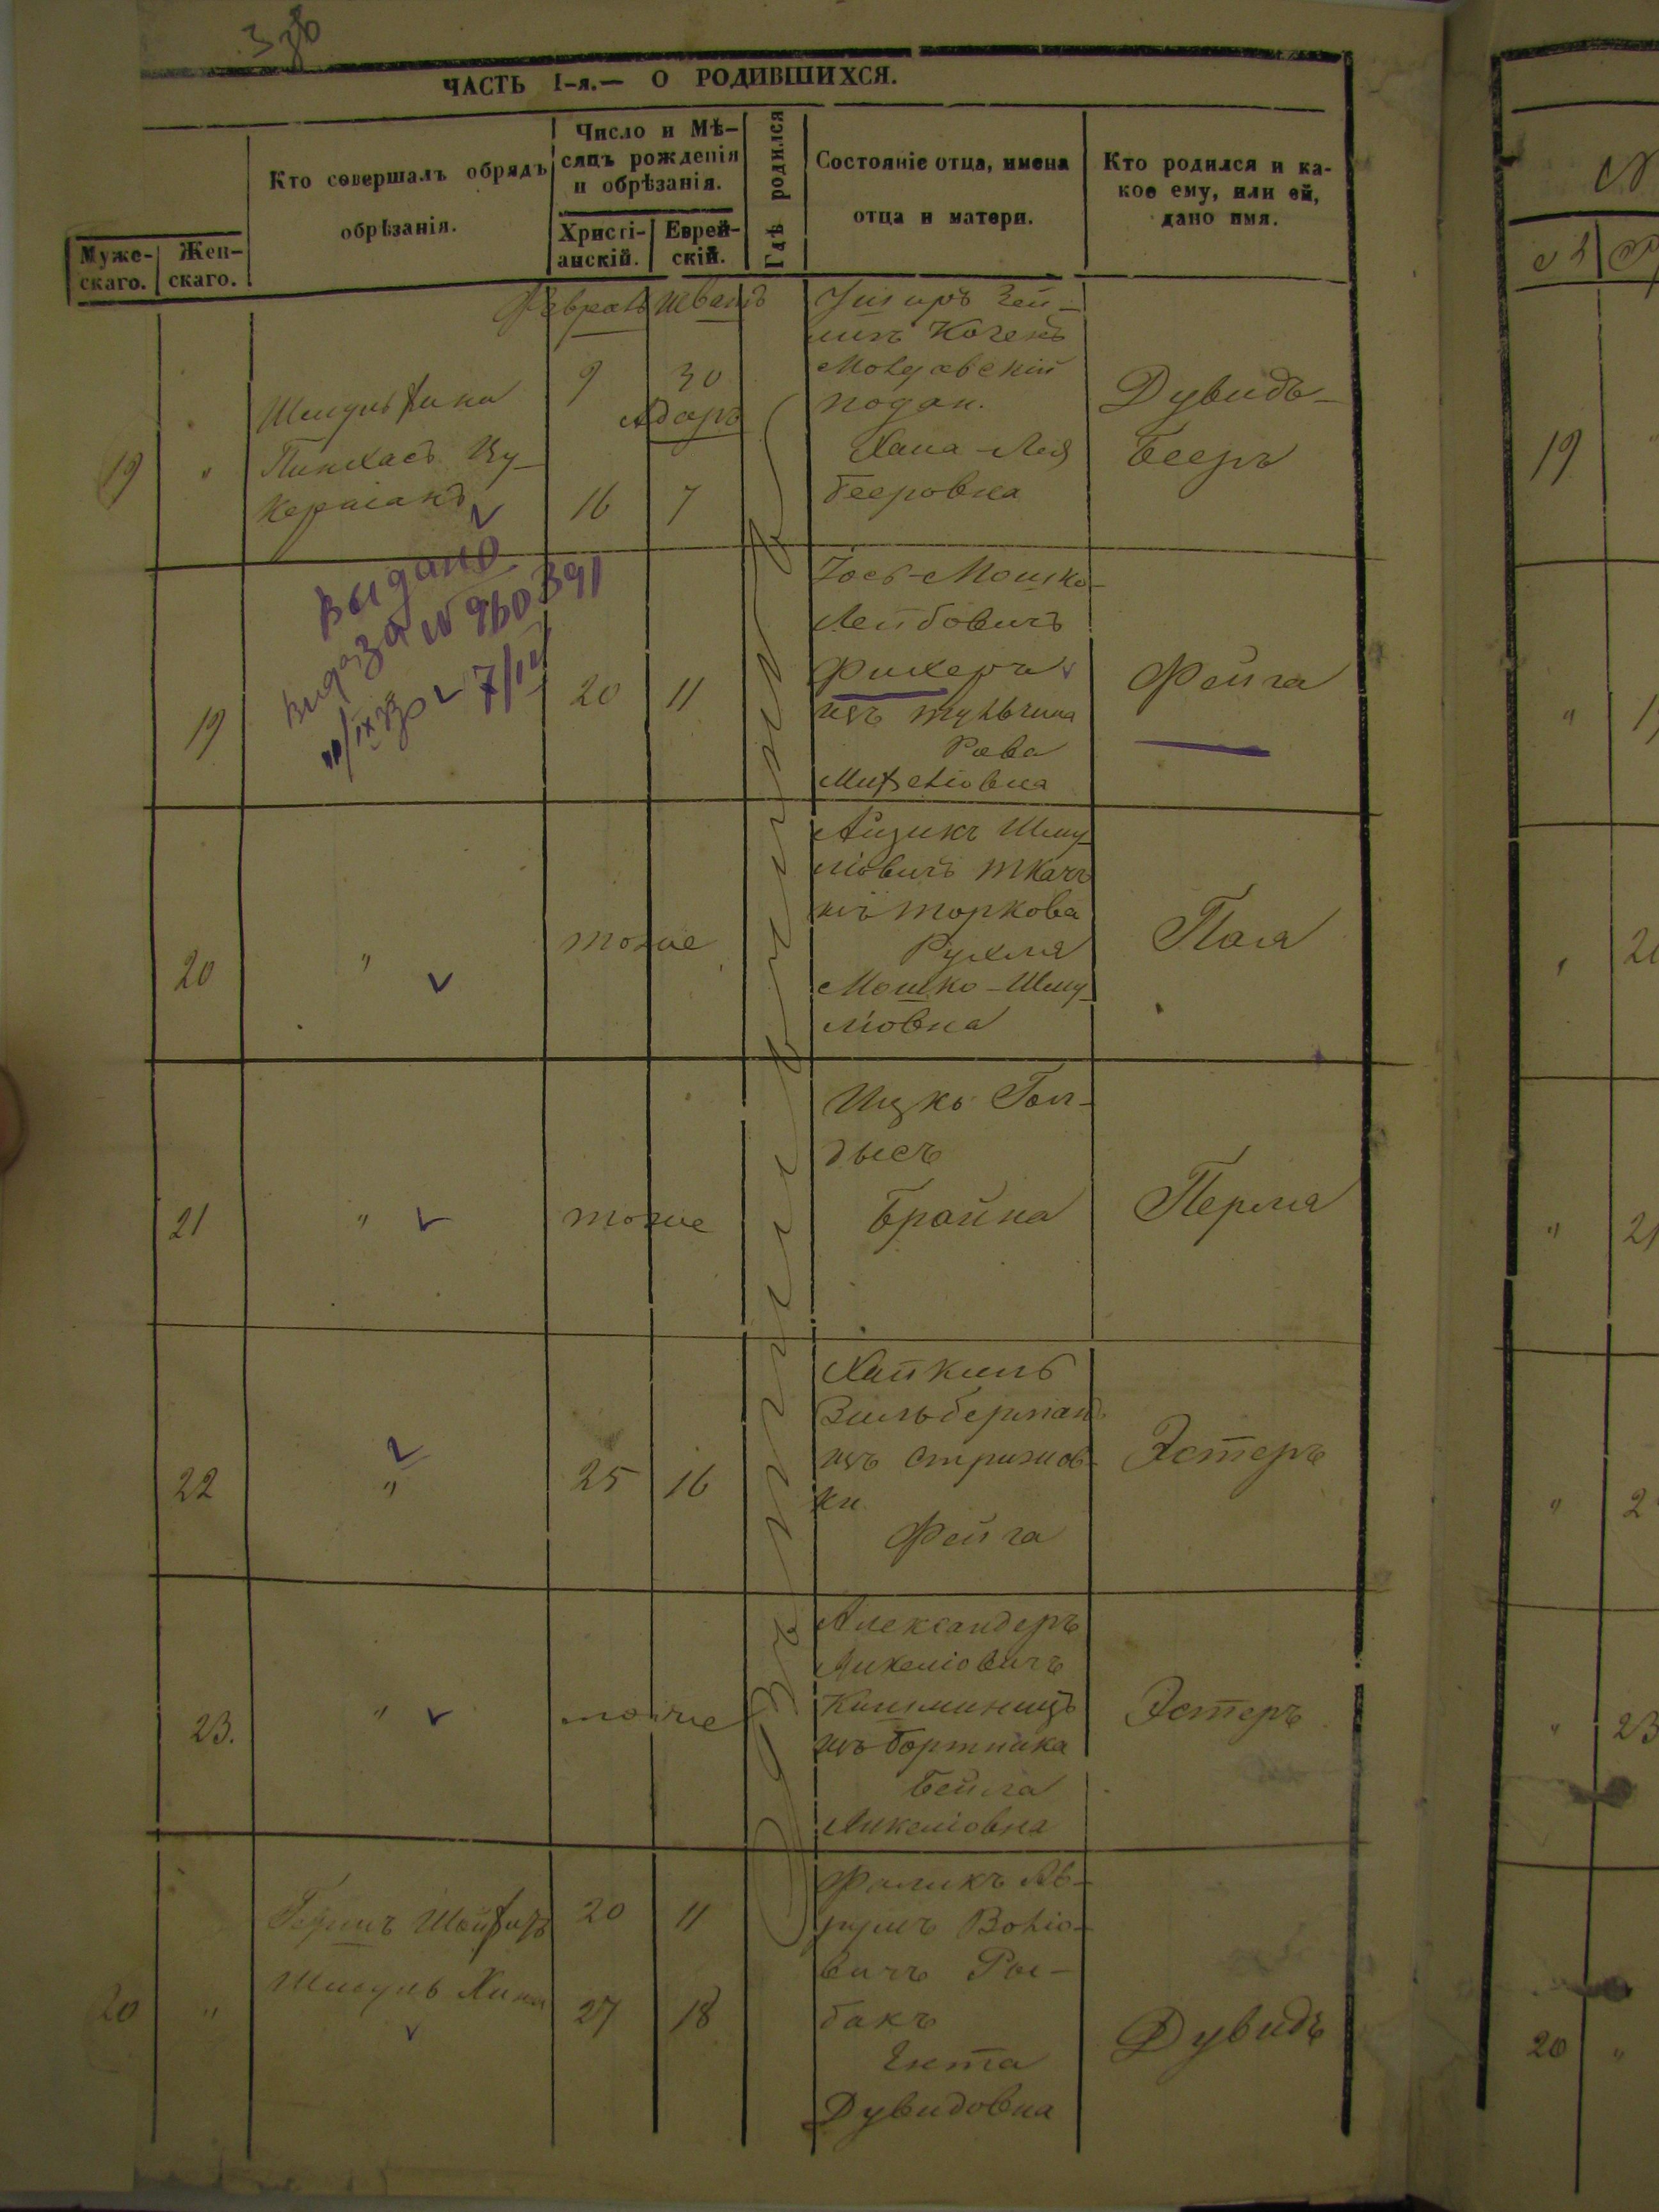 ЧАСТЬ I-я.— О РОДИВШИХСЯ.
Муже-
скаго.
Жен-
скаго.
Кто совершалъ обрядъ
обрѣзанія.
Число и Мѣ-
сяцъ рожденія
и обрѣзанія.
Христі-
анскій.
Еврей-
скій.
Гдѣ родился
Состояніе отца, имена
отца и матери.
Кто родился и ка-
кое ему, или ей,
дано имя.
Февраль Шватъ
19 "
Шмуль Хина
Пинхасъ Цу-
керманъ
9 30
Адаръ
16 7
Коганъ
Молдавскій
подан.
Хана-Лея
Бееровна
Дувидъ-
Бееръ
19
выдано
20 11
Іось-Мошко-
Лейбовичъ
Фихеръ
изъ Тульчина
Рава
Фейга
20 "
тоже
Айзикъ Шму-
ліовичъ Ткачъ
изъ Торкова
Рухля
Мошко-Шму-
ліовна
Пая
21 "
тоже
Ицко Гол-
дысъ
Брайна
Перля
22 "
25 16
Хайкиль
Зильберманъ
изъ Стрижов-
ки
Фейга
Эстеръ
23. "
тоже
Александеръ
Анкеліовичъ
изъ Бортника
Бейла
Анкеліовна
Эстеръ
20 "
Шмуль Хина
20 11
27 18
Фаликъ Ав-
румъ Волю-
вичъ Ры-
бакъ
Ента
Дувидовна
Дувидъ
19
20
21
23
20 "